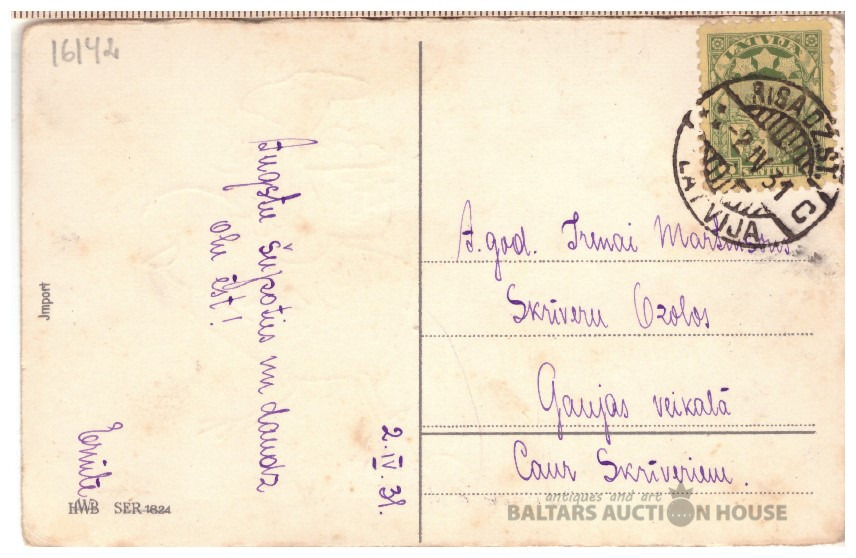 16142
Augstu šūpoties un daudz
olu ēst!
2.IV.31.
Jmport
HWB SER 1824
LATVIJA
RIGA DZ.ST.
-2.IV 31
C
LATVIJA
A. god. Irenai
Skrīveru Ozolos
Gaujas veikalā
Caur Skrīveriem.
antiques and art
BALTARS AUCTION HOUSE